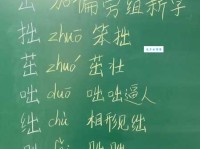 出 加偏旁组新字
拙 zhuō 笨拙
茁 zhuó 茁壮
咄 duō 咄咄逼人
绌 chù 相形见绌